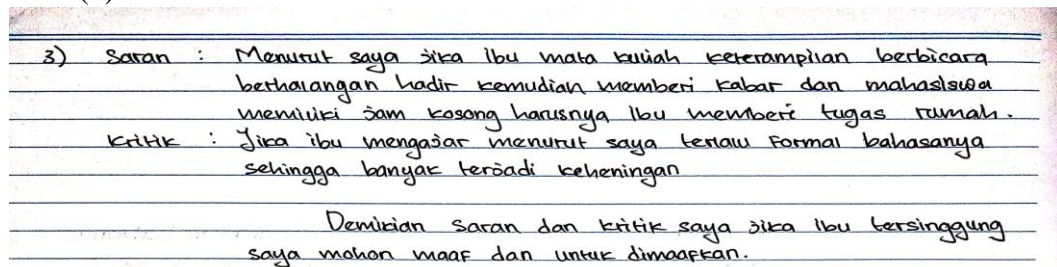 3) Saran : Menurut saya jika Ibu mata kuliah keterampilan berbicara
berhalangan hadir kemudian memberi kabar dan mahasiswa
memiliki jam kosong harusnya Ibu memberi tugas rumah.
kritik : Jika ibu mengajar menurut saya terlalu Formal bahasanya
sehingga banyak terjadi keheningan
Demikian saran dan kritik saya jika ibu tersinggung
saya mohon maaf dan untuk dimaafkan.